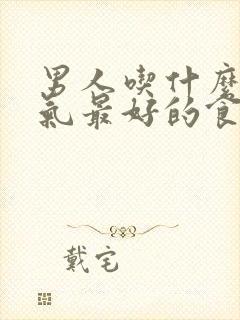 男人喫什麼
氣最好的食
戴宅